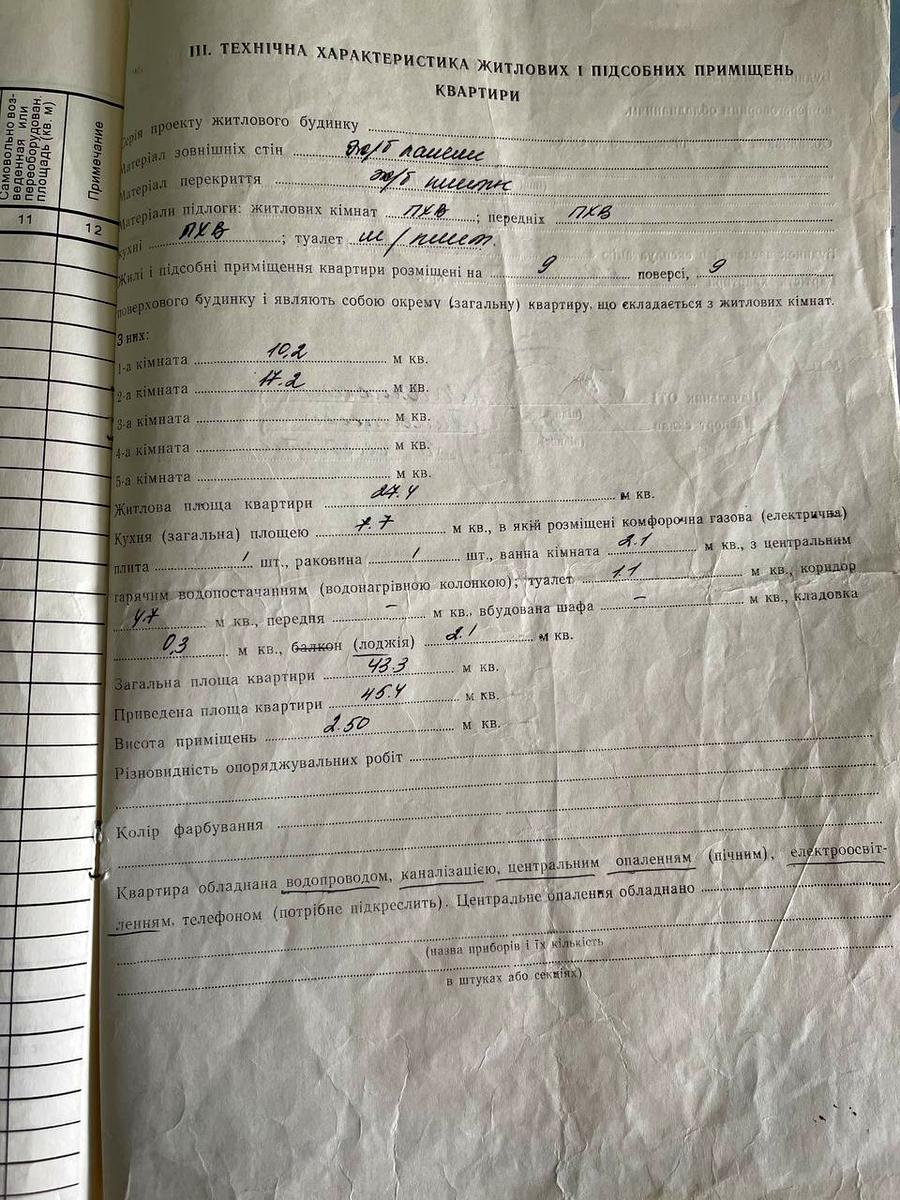 Самовольно воз-
веденная или
переоборудован.
площадь (кв. м)
Примечание
11
12
III. ТЕХНІЧНА ХАРАКТЕРИСТИКА ЖИТЛОВИХ І ПІДСОБНИХ ПРИМІЩЕНЬ
КВАРТИРИ
Серія проекту житлового будинку
Матеріал зовнішніх стін ж/б панели
Матеріал перекриття ж/б плити
Матеріали підлоги: житлових кімнат ПХВ ; передніх ПХВ
кухні ПХВ ; туалет м/плит.
Жилі і підсобні приміщення квартири розміщені на 9 поверсі, 9
поверхового будинку і являють собою окрему (загальну) квартиру, що складається з житлових кімнат.
З них:
1-а кімната 10,2 м кв.
2-а кімната 17.2 м кв.
3-а кімната м кв.
4-а кімната м кв.
5-а кімната м кв.
Житлова площа квартири 27.4 м кв.
Кухня (загальна) площею 7.7 м кв., в якій розміщені комфорочна газова (електрична)
плита 1 шт., раковина 1 шт., ванна кімната 2.1 м кв., з центральним
гарячим водопостачанням (водонагрівною колонкою); туалет 1.1 м кв., коридор
4.7 м кв., передня – м кв., вбудована шафа – м кв., кладовка
0,3 м кв., балкон (лоджія) 2.1 м кв.
Загальна площа квартири 43.3 м кв.
Приведена площа квартири 45.4 м кв.
Висота приміщень 2.50 м кв.
Різновидність опоряджувальних робіт
Колір фарбування
Квартира обладнана водопроводом, каналізацією, центральним опаленням (пічним), електроосвіт-
ленням, телефоном (потрібне підкреслить). Центральне опалення обладнано
(назва приборів і їх кількість
в штуках або секціях)